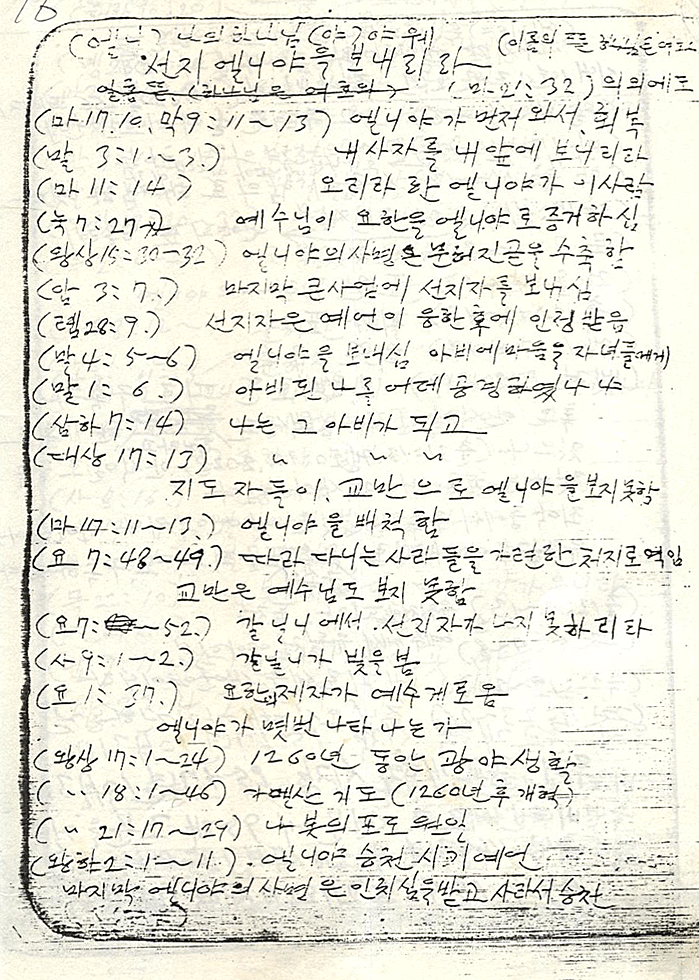 16
(엘니) 나의 하나님 (야) 야웨 (이름의 뜻은
선지 엘니야을 보내리라
이름뜻, (하나님은 여호와) (마21:32) 의의에도
(마17:10, 막9:11~13) 엘니야가 먼저 와서, 회복
(말 3:1~3.) 내 사자를 내 앞에 보내리라
(마11:14) 오리라 한 엘니야가 이사람
(눅7:27) 예수님이 요한을 엘니야로 증거하심
(왕상15:30-32) 엘니야의 사명은 무너진 곳을 수축함
(암 3:7.) 마지막 큰 사업에 선지자를 보내심
(렘28:9.) 선지자은 예언이 응한 후에 인정 받음
(말4:5~6) 엘니야을 보내심 아비에 마음을 자녀들에게)
(말1:6.) 아비 된 나를 어데 공경하였나냐
(삼하7:14) 나는 그 아비가 되고
(대상17:13) 〃 〃 〃
지도자들이, 교만으로 엘니야을 보지 못함
(마17:11~13.) 엘니야을 배척함
(요7:48~49.) 따라 다니는 사라들을 가련한 처지로 여김
교만은 예수님도 보지 못함
(요7: ~52.) 갈닐니에서. 선지자가 나지 못하리라
(사9:1~2.) 갈닐니가 빛을 봄
(요1:37.) 요한의 제자가 예수게로 옴
엘니야가 몃번 나타나는가
(왕상17:1~24) 1260년 동안 광야생활
( 〃 18:1~46) 가멜산 기도 (1260년 후 개혁)
( 〃 21:17~29) 나봇의 포도원인
(왕하2:1~11.). 엘니야 승천 시기 예언
마지막 엘니야의 사명은 인치심을 받고 사라서 승천